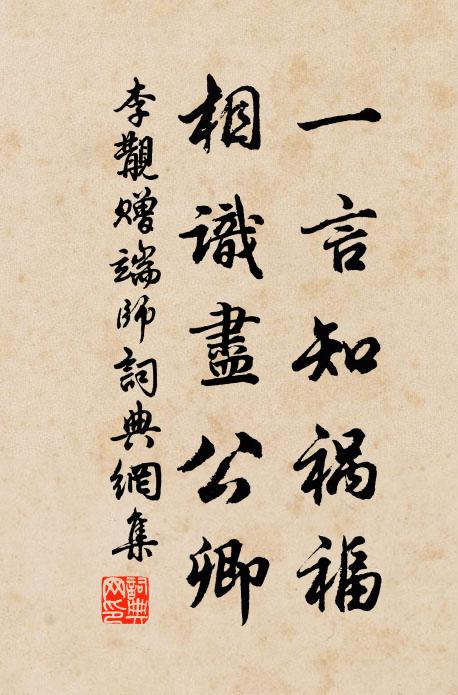 一言知禍福
相識盡公卿
李觀贈端師詞典網集
詞典網印